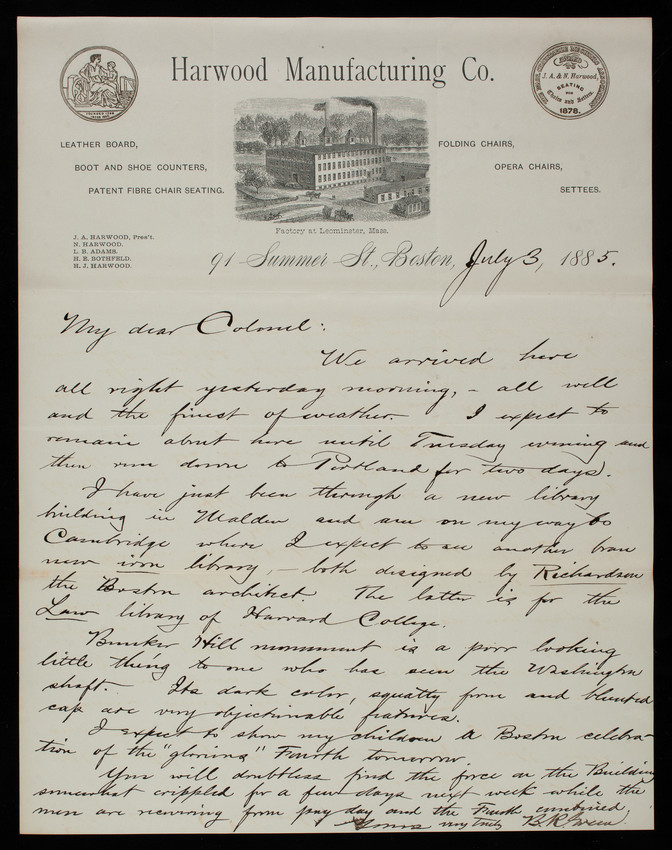 Harwood Manufacturing Co.
J. A. & N. Harwood,
SEATING
FOR
Chairs and Settees.
1878.
LEATHER BOARD,
BOOT AND SHOE COUNTERS,
PATENT FIBRE CHAIR SEATING.
FOLDING CHAIRS,
OPERA CHAIRS,
SETTEES.
Factory at Leominster, Mass.
J. A. HARWOOD, Pres't.
N. HARWOOD.
L. B. ADAMS.
H. E. BOTHFELD.
H. J. HARWOOD.
91 Summer St., Boston, July 3, 1885.
My dear Colonel:
We arrived here
all right yesterday morning, - all well
and the finest of weather. I expect to
remain about here until Tuesday evening and
then run down to Portland for two days.
I have just been through a new library
building in Malden and am on my way to
Cambridge where I expect to see another bran
new library, - both designed by Richardson
the Boston architect. The latter is for the
Law library of Harvard College.
Bunker Hill monument is a poor looking
little thing to one who has seen the Washington
shaft. Its dark color, squatty form and blunted
cap are very objectionable features.
I expect to show my children a Boston celebra-
tion of the "glorious" Fourth tomorrow.
You will doubtless find the force on the Building
somewhat crippled for a few days next week while the
men are recovering from pay day and the Fourth combined.
Yours very truly B. R. Green.